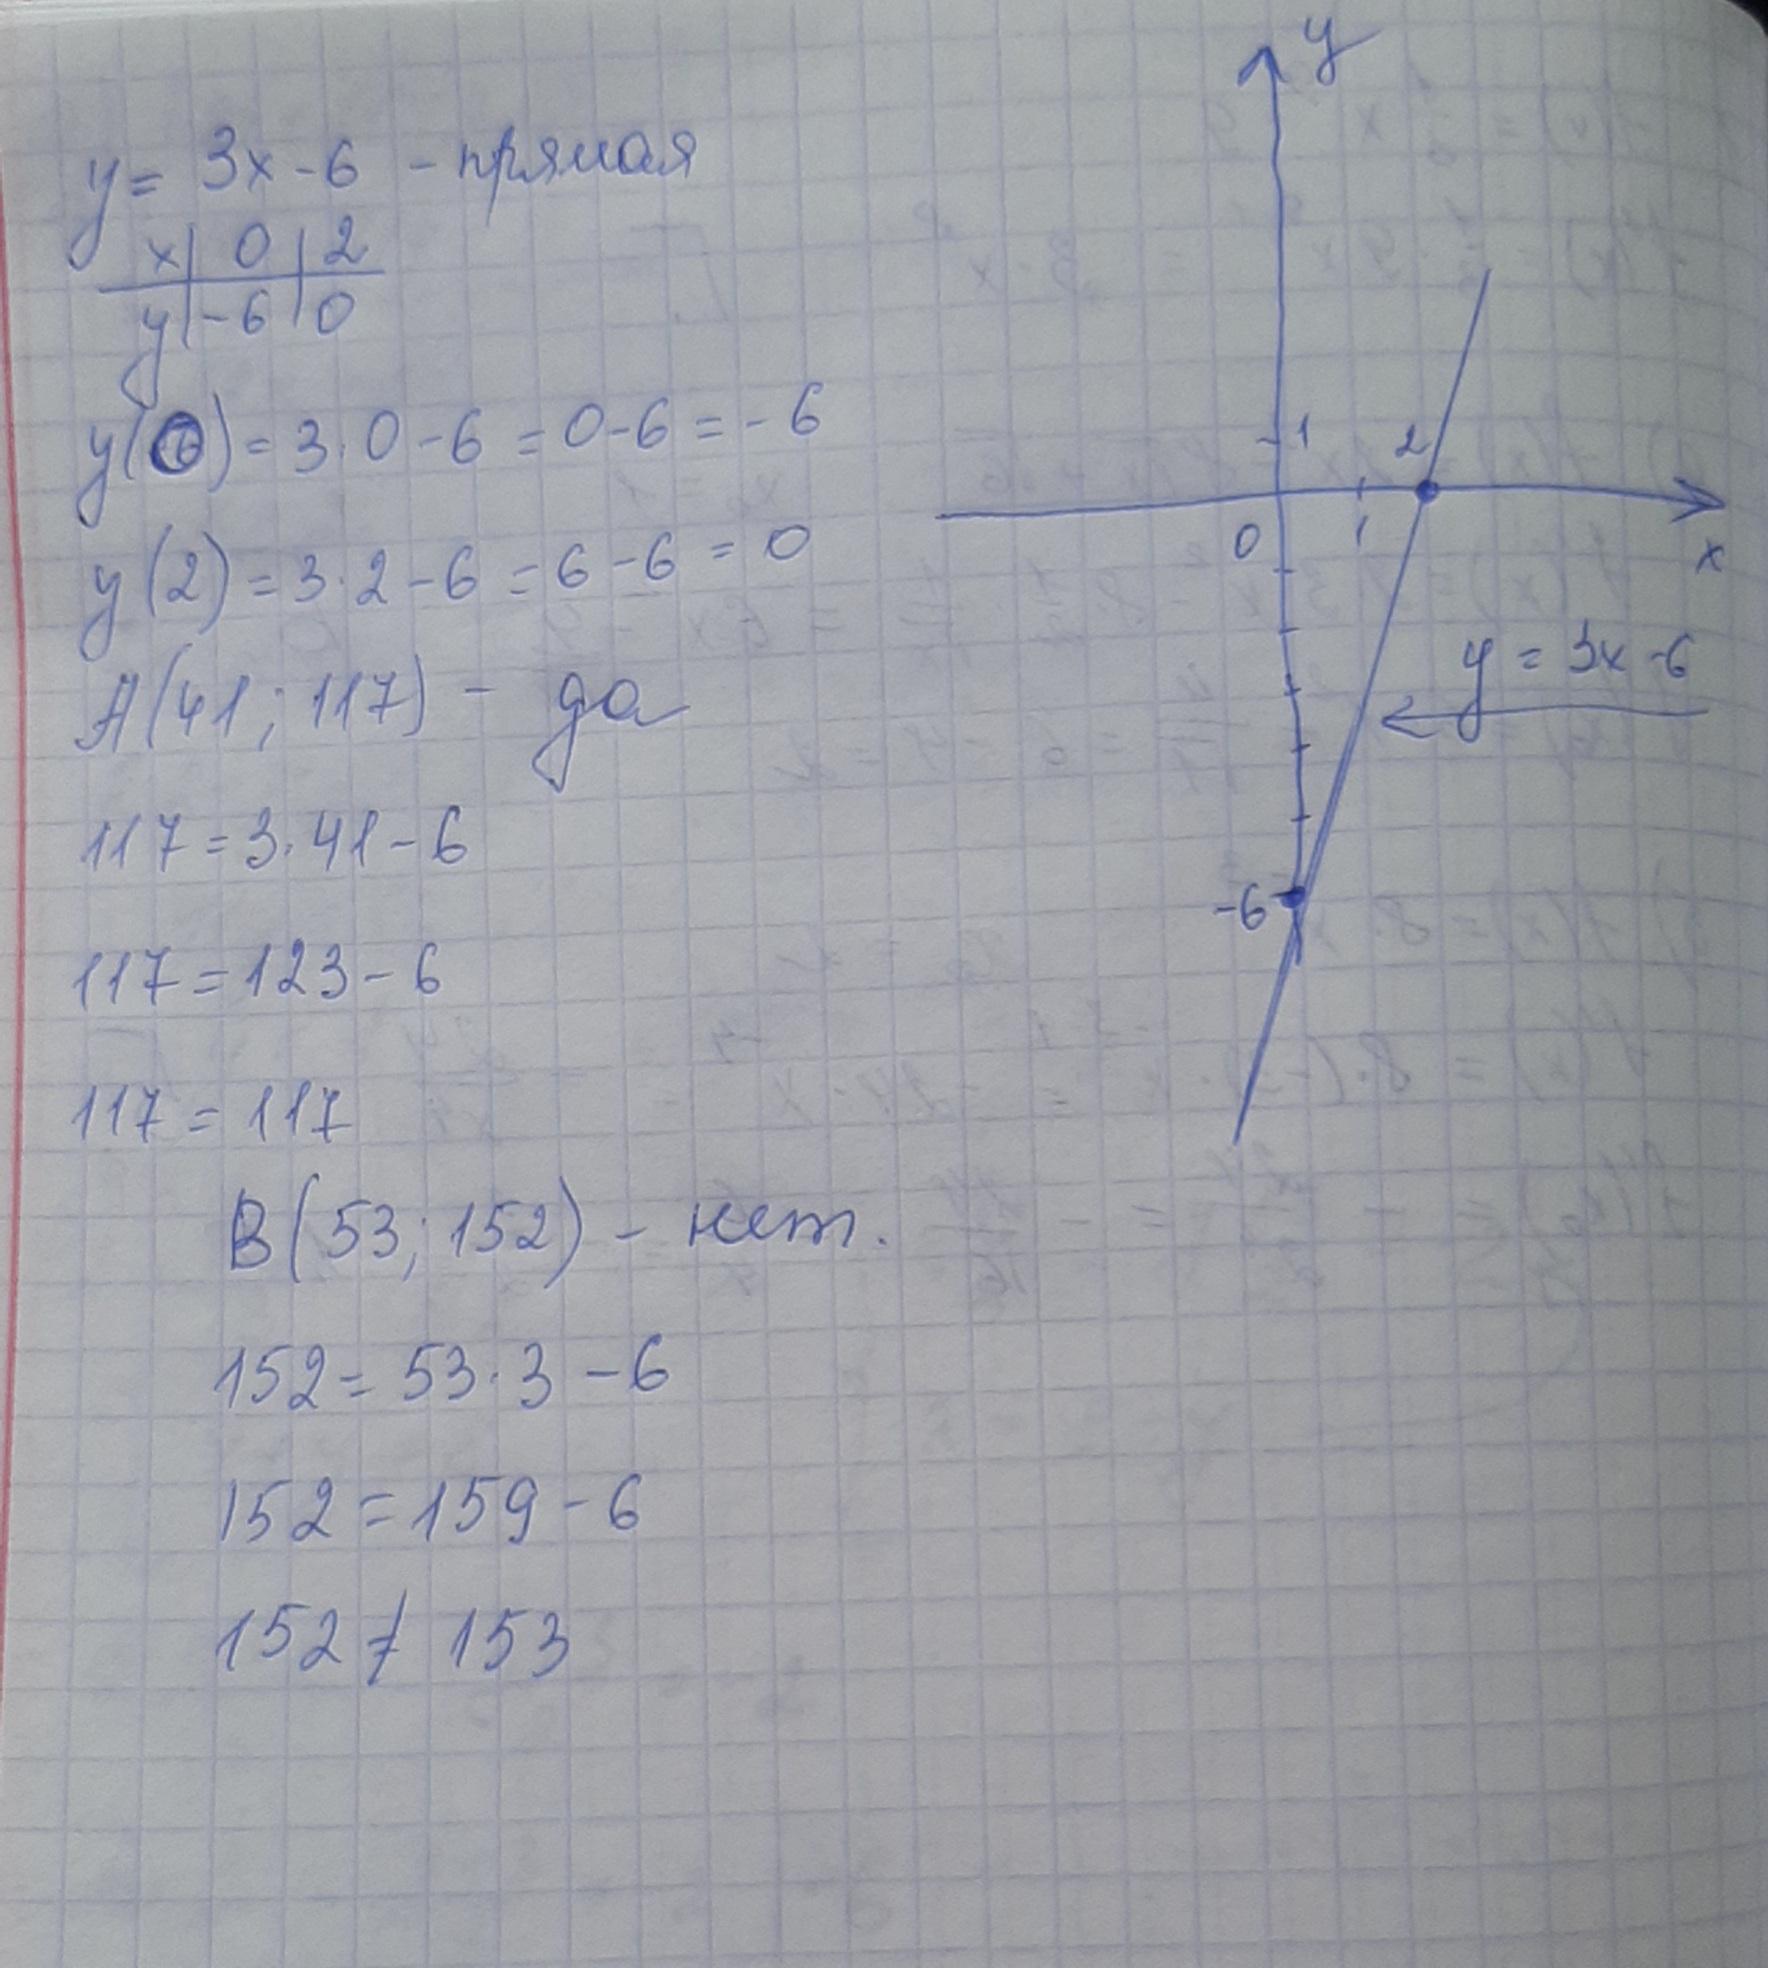 y = 3x - 6 - прямая
x | 0 | 2
y | -6 | 0
y(0) = 3·0 - 6 = 0 - 6 = -6
y(2) = 3·2 - 6 = 6 - 6 = 0
A(41; 117) - да
117 = 3·41 - 6
117 = 123 - 6
117 = 117
B(53; 152) - нет.
152 = 53·3 - 6
152 = 159 - 6
152 ≠ 153
y
1
2
0
1
x
y = 3x - 6
-6